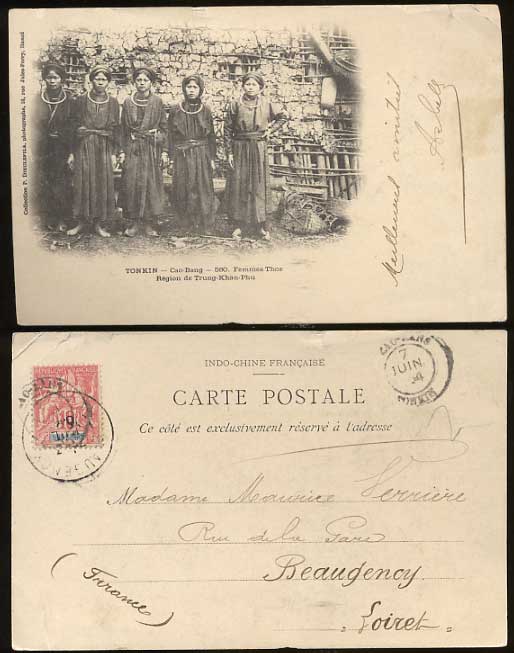 Collection P. DIEULEFILS, photographe, 53, rue Jules-Ferry, Hanoï
TONKIN — Cao-Bang — 560. Femmes Thos
Région de Trung-Khan-Phu
Meilleures amitiés
INDO-CHINE FRANÇAISE
CARTE POSTALE
Ce côté est exclusivement réservé à l'adresse
CAO-BANG
7
JUIN
TONKIN
Madame Maurice Verrière
Rue de la Gare
Beaugency
(France)
Loiret